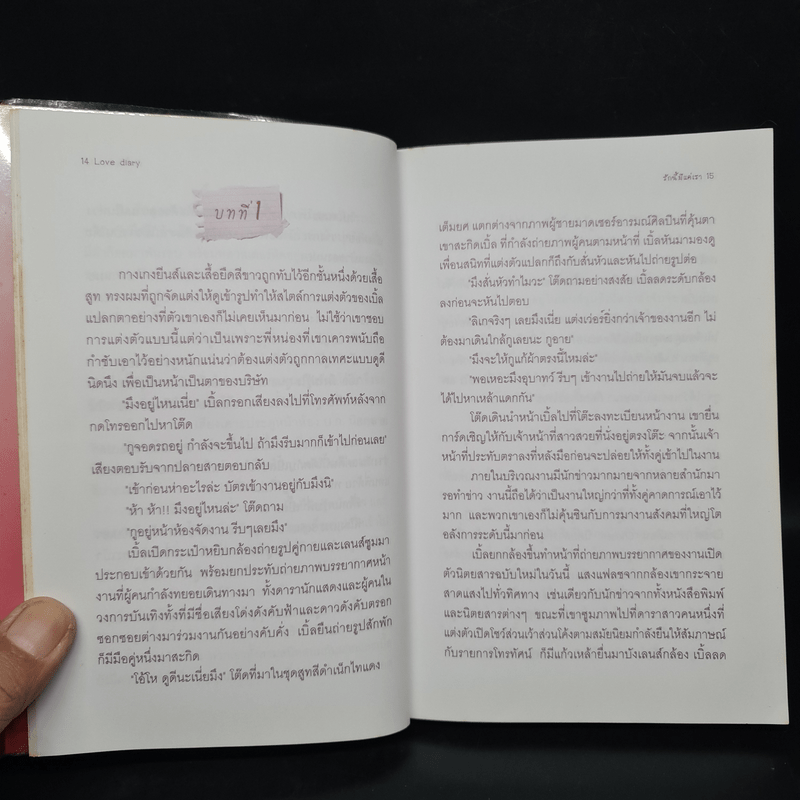 14 Love diary
บทที่ 1
กางเกงยีนส์และเสื้อยืดสีขาวถูกทับไว้อีกชั้นหนึ่งด้วยเสื้อ
สูท ทรงผมที่ถูกจัดแต่งให้ดูเข้ารูปทำให้สไตล์การแต่งตัวของเบิ้ล
แปลกตาอย่างที่ตัวเขาเองก็ไม่เคยเห็นมาก่อน ไม่ใช่ว่าเขาชอบ
การแต่งตัวแบบนี้แต่ว่าเป็นเพราะพี่หน่องที่เขาเคารพนับถือ
กำชับเอาไว้อย่างหนักแน่นว่าต้องแต่งตัวถูกกาลเทศะแบบดูดี
นิดนึง เพื่อเป็นหน้าเป็นตาของบริษัท
"มึงอยู่ไหนเนี่ย" เบิ้ลกรอกเสียงลงไปที่โทรศัพท์หลังจาก
กดโทรออกไปหาโต๊ด
"กูจอดรถอยู่ กำลังจะขึ้นไป ถ้ามึงรีบมากก็เข้าไปก่อนเลย"
เสียงตอบรับจากปลายสายตอบกลับ
"เข้าก่อนห่าอะไรล่ะ บัตรเข้างานอยู่กับมึงนิ"
"ห้า ห้า!! มึงอยู่ไหนล่ะ" โต๊ดถาม
"กูอยู่หน้าห้องจัดงาน รีบๆเลยมึง"
เบิ้ลเปิดกระเป๋าหยิบกล้องถ่ายรูปคู่กายและเลนส์ซูมมา
ประกอบเข้าด้วยกัน พร้อมยกประทับถ่ายภาพบรรยากาศหน้า
งานที่ผู้คนกำลังทยอยเดินทางมา ทั้งดารานักแสดงและผู้คนใน
วงการบันเทิงทั้งที่มีชื่อเสียงโด่งดังคับฟ้าและดาวดังคับตรอก
ซอกซอยต่างมาร่วมงานกันอย่างคับคั่ง เบิ้ลยืนถ่ายรูปสักพัก
ก็มีมือคู่หนึ่งมาสะกิด
"โอ้โห ดูดีนะเนี่ยมึง" โต๊ดที่มาในชุดสูทสีดำเน็กไทแดง
รักนี้มีแค่เรา 15
เต็มยศ แตกต่างจากภาพผู้ชายมาดเซอร์อารมณ์ศิลปินที่คุ้นตา
เขาสะกิดเบิ้ล ที่กำลังถ่ายภาพผู้คนตามหน้าที่ เบิ้ลหันมามองดู
เพื่อนสนิทที่แต่งตัวแปลกก็ถึงกับสั่นหัวและหันไปถ่ายรูปต่อ
"มึงสั่นหัวทำไมวะ" โต๊ดถามอย่างสงสัย เบิ้ลลดระดับกล้อง
ลงก่อนจะหันไปตอบ
"ลิเกจริงๆ เลยมึงเนี่ย แต่งเว่อร์ยิ่งกว่าเจ้าของงานอีก ไม่
ต้องมาเดินใกล้กูเลยนะ กูอาย"
"มึงจะให้กูแก้ผ้าตรงนี้ไหมล่ะ"
"พอเหอะมึงอุบาทว์ รีบๆ เข้างานไปถ่ายให้มันจบแล้วจะ
ได้ไปหาเหล้าแดกกัน"
โต๊ดเดินนำหน้าเบิ้ลไปที่โต๊ะลงทะเบียนหน้างาน เขายื่น
การ์ดเชิญให้กับเจ้าหน้าที่สาวสวยที่นั่งอยู่ตรงโต๊ะ จากนั้นเจ้า
หน้าที่ประทับตราลงที่หลังมือก่อนจะปล่อยให้ทั้งคู่เข้าไปในงาน
ภายในบริเวณงานมีนักข่าวมากมายจากหลายสำนักมา
รอทำข่าว งานนี้ถือได้ว่าเป็นงานใหญ่กว่าที่ทั้งคู่คาดการณ์เอาไว้
มาก และพวกเขาเองก็ไม่คุ้นชินกับการมางานสังคมที่ใหญ่โต
อลังการระดับนี้มาก่อน
เบิ้ลยกกล้องขึ้นทำหน้าที่ถ่ายภาพบรรยากาศของงานเปิด
ตัวนิตยสารฉบับใหม่ในวันนี้ แสงแฟลชจากกล้องเขากระจาย
สาดแสงไปทั่วทิศทาง เช่นเดียวกับนักข่าวจากทั้งหนังสือพิมพ์
และนิตยสารต่างๆ ขณะที่เขาซูมภาพไปที่ดาราสาวคนหนึ่งที่
แต่งตัวเปิดโชว์ส่วนเว้าส่วนโค้งตามสมัยนิยมกำลังยืนให้สัมภาษณ์
กับรายการโทรทัศน์ ก็มีแก้วเหล้ายื่นมาบังเลนส์กล้อง เบิ้ลลด